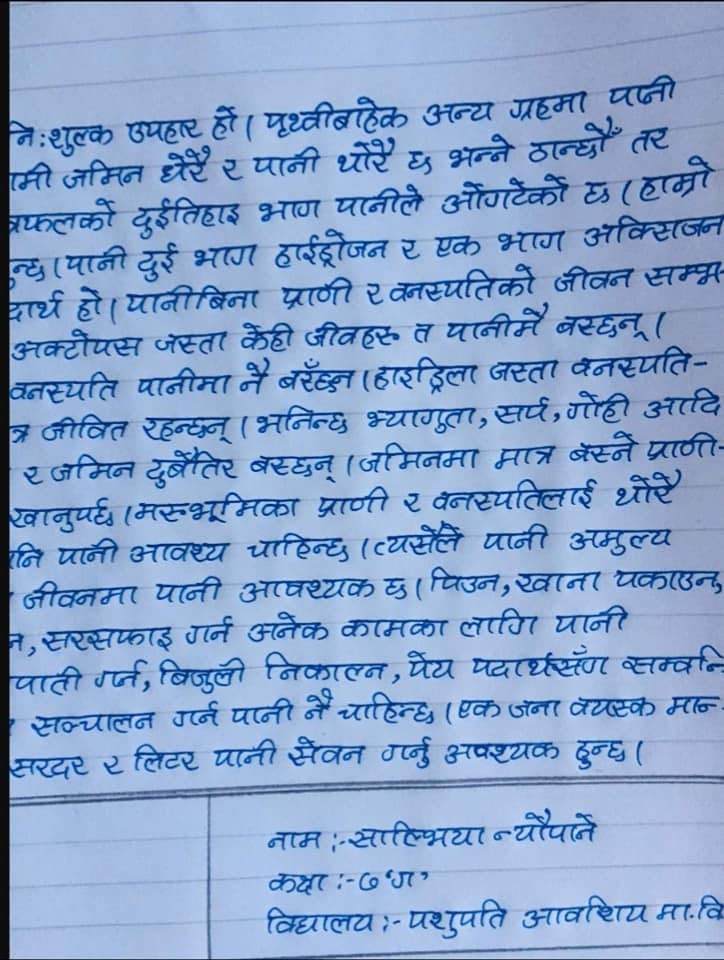 नि:शुल्क उपहार हो। पृथ्वीबाहेक अन्य ग्रहमा पानी
ामी जमिन धेरै र पानी थोरै छ भन्ने ठान्छौँ तर
त्रफलको दुईतिहाइ भाग पानीले ओगटेको छ। हाम्रो
न्छ। पानी दुई भाग हाईड्रोजन र एक भाग अक्सिजन
दार्थ हो। पानीबिना प्राणी र वनस्पतिको जीवन सम्भ-
अक्टोपस जस्ता केही जीवहरू त पानीमै बस्छन्।
वनस्पति पानीमा नै बस्छन। हाइड्रिला जस्ता वनस्पति-
त्र जीवित रहन्छन्। भनिन्छ भ्यागुता, सर्प, गोही आदि
र जमिन दुबैतिर बस्छन्। जमिनमा मात्र बस्ने प्राणी-
खानुपर्छ। मरुभूमिका प्राणी र वनस्पतिलाई थोरै
नि पानी आवश्य चाहिन्छ। त्यसैले पानी अमुल्य
जीवनमा पानी आवश्यक छ। पिउन, खाना पकाउन,
न, सरसफाइ गर्न अनेक कामका लागि पानी
पाती गर्न, बिजुली निकाल्न, पेय पदार्थसँग सम्वन्धि
सञ्चालन गर्न पानी नै चाहिन्छ। एक जना वयस्क मान-
सरदर २ लिटर पानी सेवन गर्नु अवश्यक हुन्छ।
नाम :- साल्भिया न्यौपाने
कक्षा :- ७ 'ग'
विद्यालय :- पशुपति आवशिय मा.वि